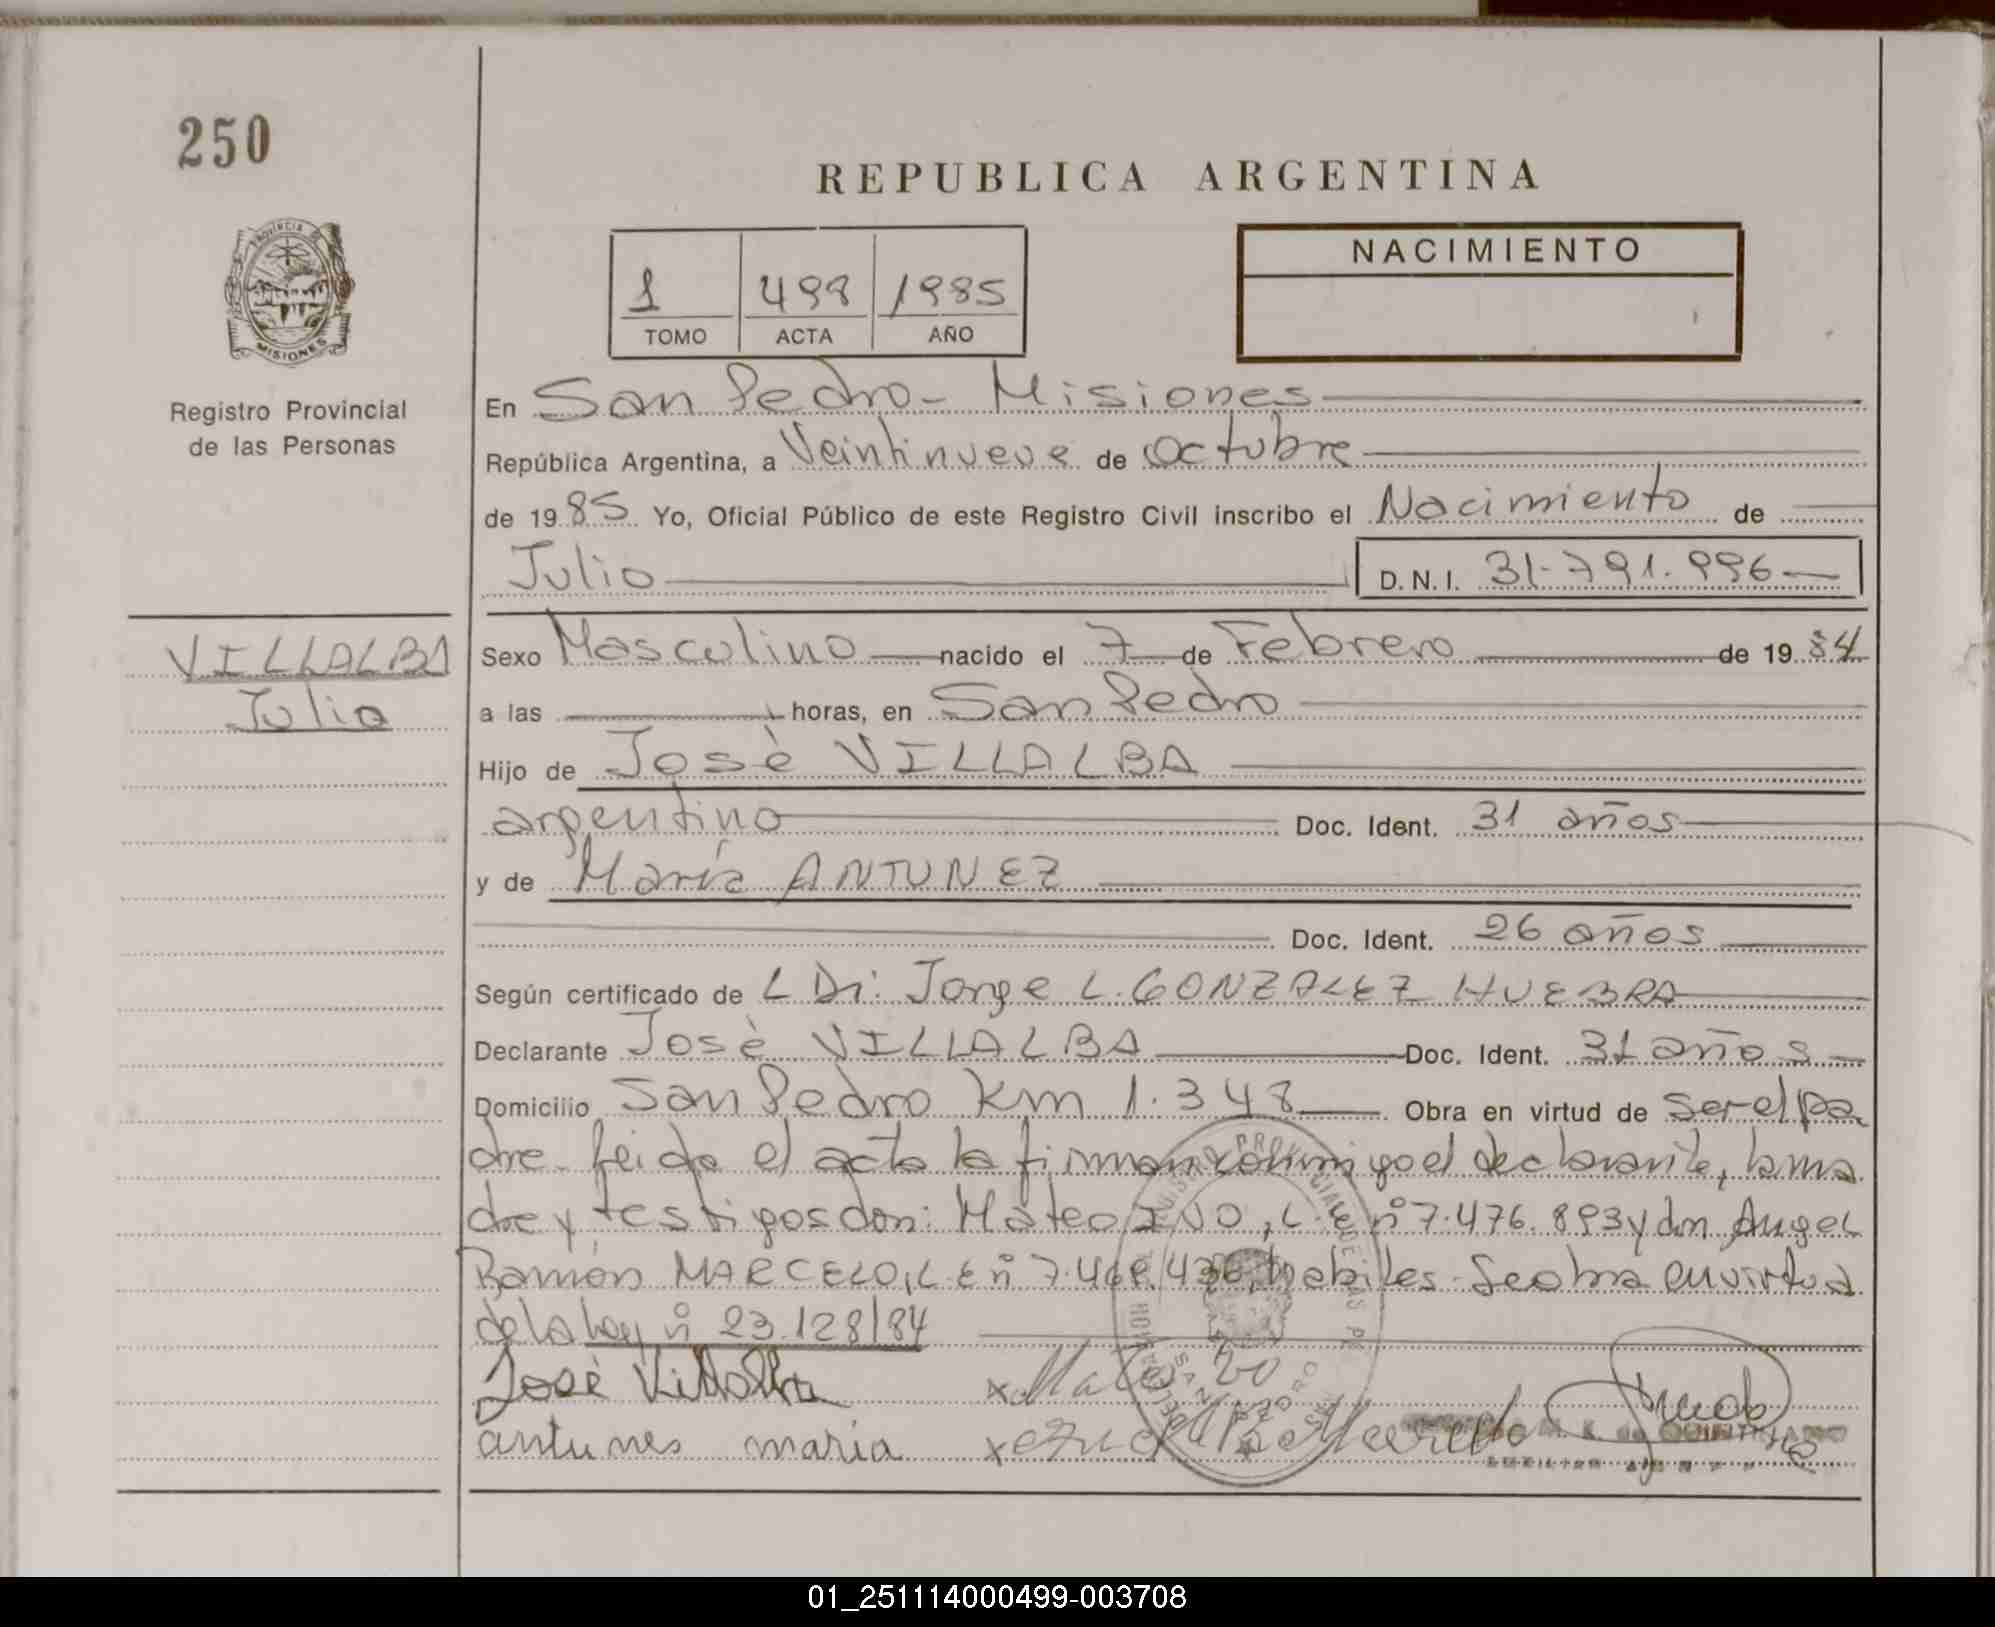 250
REPUBLICA ARGENTINA
PROVINCIA DE
MISIONES
Registro Provincial
de las Personas
1 498 1985
TOMO ACTA AÑO
NACIMIENTO
En San Pedro- Misiones
República Argentina, a Veintinueve de Octubre
de 19 85 Yo, Oficial Público de este Registro Civil inscribo el Nacimiento de
Julio D.N.I. 31.791.996
VILLALBA
Julio
Sexo Masculino nacido el 7 de Febrero de 19 84
a las horas, en San Pedro
Hijo de José VILLALBA
argentino Doc. Ident. 31 años
y de María ANTUNEZ
Doc. Ident. 26 años
Según certificado de L Dr: Jorge L. GONZALEZ HUEBRA
Declarante José VILLALBA Doc. Ident. 31 años
Domicilio San Pedro Km 1.348 Obra en virtud de ser el pa
dre. Leida el acta la firman conmigo el declarante, la ma
dre y testigos don: Mateo IVO, L.E nº 7.476.893 y don Angel
Ramón MARCELO, L.E nº habiles. Se obra en virtud
de la ley nº 23.128/84
José Villalba
antunes maria
x
x Marcelo
SAN PEDRO
01_251114000499-003708